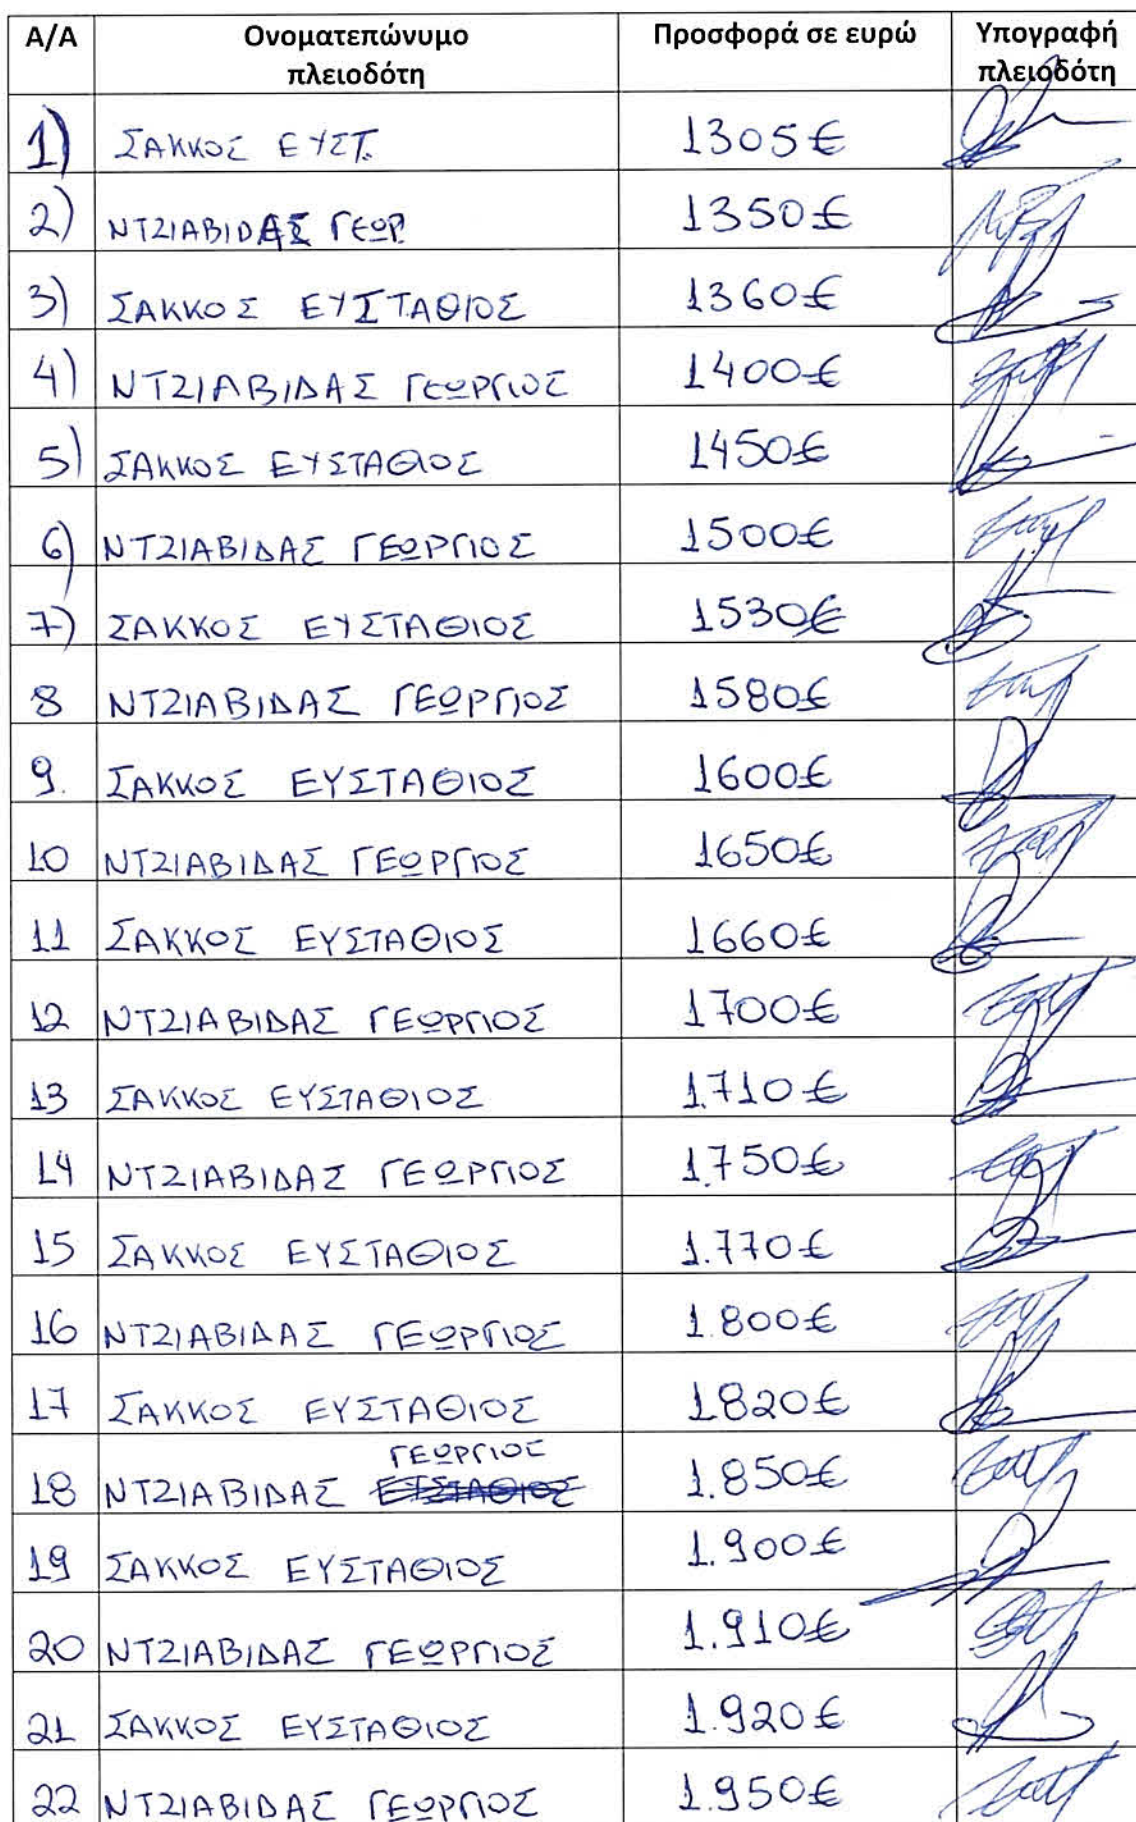 Α/Α Ονοματεπώνυμο πλειοδότη Προσφορά σε ευρώ Υπογραφή πλειοδότη
1) ΣΑΚΚΟΣ ΕΥΣΤ. 1305€
2) ΝΤΖΙΑΒΙΔΑΣ ΓΕΩΡ 1350€
3) ΣΑΚΚΟΣ ΕΥΣΤΑΘΙΟΣ 1360€
4) ΝΤΖΙΑΒΙΔΑΣ ΓΕΩΡΓΙΟΣ 1400€
5) ΣΑΚΚΟΣ ΕΥΣΤΑΘΙΟΣ 1450€
6) ΝΤΖΙΑΒΙΔΑΣ ΓΕΩΡΓΙΟΣ 1500€
7) ΣΑΚΚΟΣ ΕΥΣΤΑΘΙΟΣ 1530€
8 ΝΤΖΙΑΒΙΔΑΣ ΓΕΩΡΓΙΟΣ 1580€
9. ΣΑΚΚΟΣ ΕΥΣΤΑΘΙΟΣ 1600€
10 ΝΤΖΙΑΒΙΔΑΣ ΓΕΩΡΓΙΟΣ 1650€
11 ΣΑΚΚΟΣ ΕΥΣΤΑΘΙΟΣ 1660€
12 ΝΤΖΙΑΒΙΔΑΣ ΓΕΩΡΓΙΟΣ 1700€
13 ΣΑΚΚΟΣ ΕΥΣΤΑΘΙΟΣ 1.710€
14 ΝΤΖΙΑΒΙΔΑΣ ΓΕΩΡΓΙΟΣ 1.750€
15 ΣΑΚΚΟΣ ΕΥΣΤΑΘΙΟΣ 1.770€
16 ΝΤΖΙΑΒΙΔΑΣ ΓΕΩΡΓΙΟΣ 1.800€
17 ΣΑΚΚΟΣ ΕΥΣΤΑΘΙΟΣ 1820€
ΓΕΩΡΓΙΟΣ
18 ΝΤΖΙΑΒΙΔΑΣ ΕΥΣΤΑΘΙΟΣ 1.850€
19 ΣΑΚΚΟΣ ΕΥΣΤΑΘΙΟΣ 1.900€
20 ΝΤΖΙΑΒΙΔΑΣ ΓΕΩΡΓΙΟΣ 1.910€
21 ΣΑΚΚΟΣ ΕΥΣΤΑΘΙΟΣ 1.920€
22 ΝΤΖΙΑΒΙΔΑΣ ΓΕΩΡΓΙΟΣ 1.950€